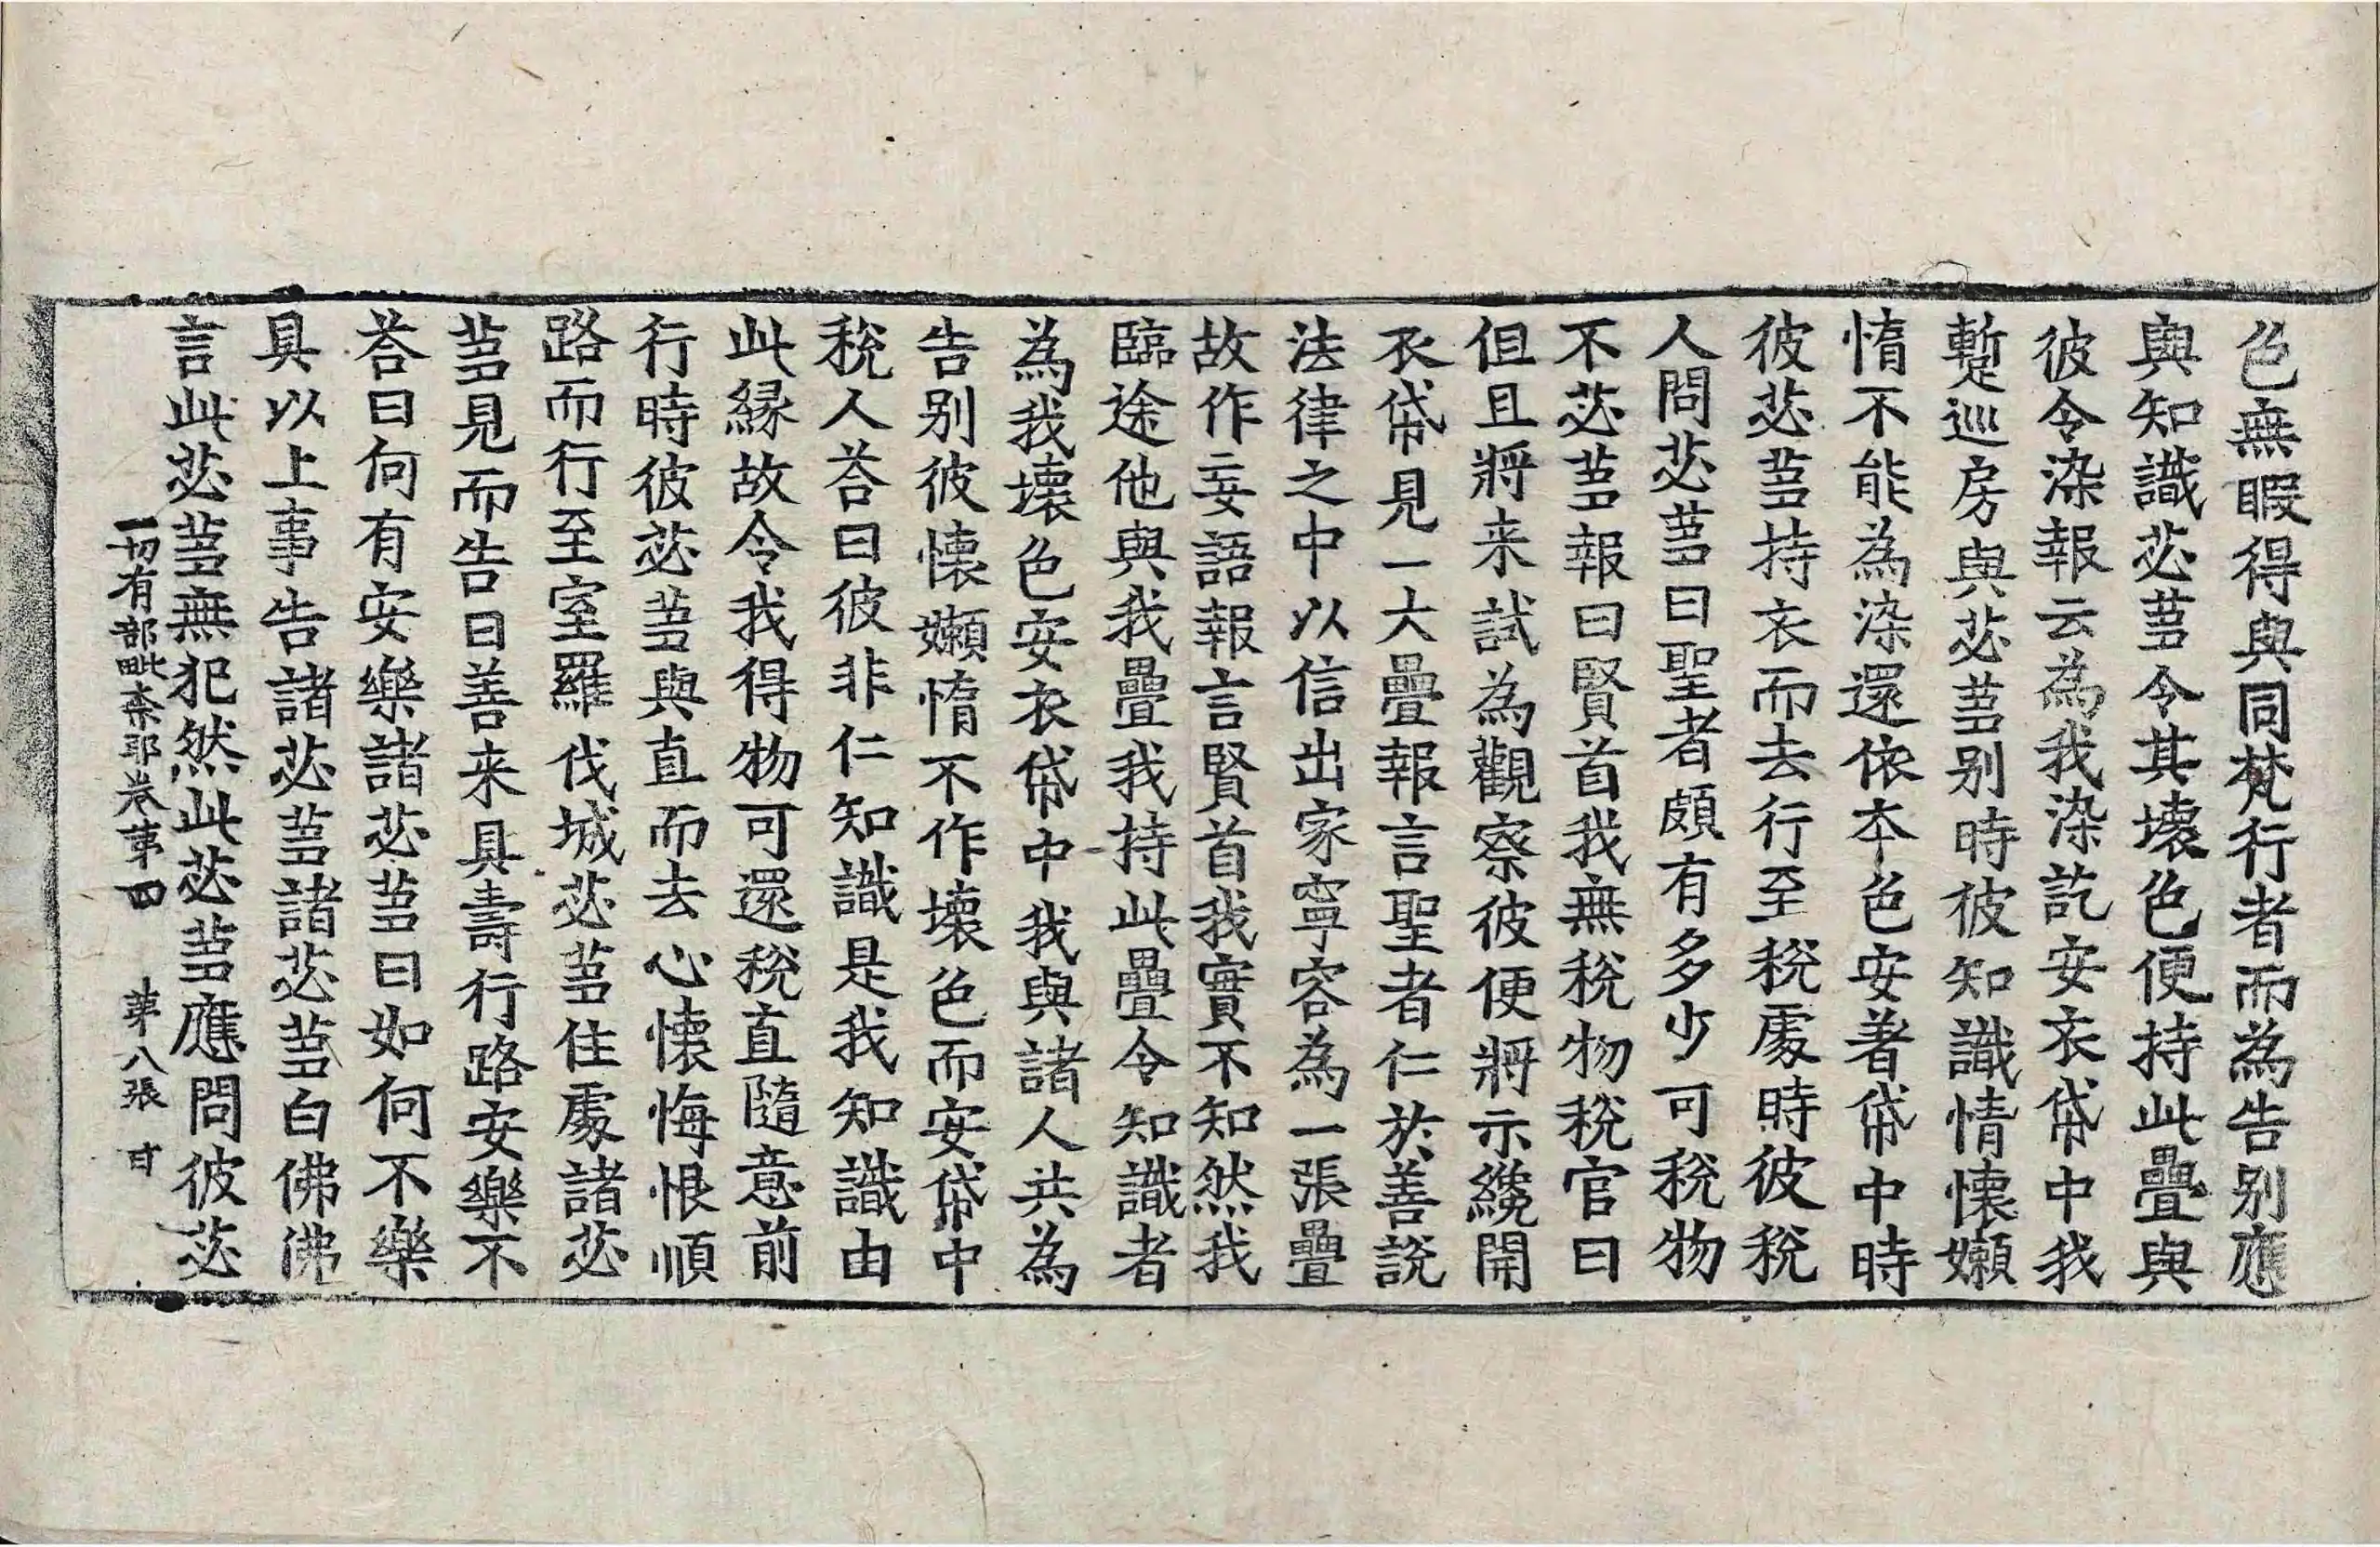 色無暇得與同梵行者而為告別應
與知識苾蒭令其壞色便持此疊與
彼令染報云為我染訖安衣帒中我
蹔巡房與苾蒭別時彼知識情懷嬾
惰不能為染還依本色安著帒中時
彼苾蒭持衣而去行至稅處時彼稅
人問苾蒭曰聖者頗有多少可稅物
不苾蒭報曰賢首我無稅物稅官曰
但且將来試為觀察彼便將示纔開
衣帒見一大疊報言聖者仁於善說
法律之中以信出家寧容為一張疊
故作妄語報言賢首我實不知然我
臨途他與我疊我持此疊令知識者
為我壞色安衣帒中我與諸人共為
告別彼懷嬾惰不作壞色而安帒中
稅人荅曰彼非仁知識是我知識由
此緣故令我得物可還稅直隨意前
行時彼苾蒭與直而去心懷悔恨順
路而行至室羅伐城苾蒭住處諸苾
蒭見而告曰善来具壽行路安樂不
荅曰何有安樂諸苾蒭曰如何不樂
具以上事告諸苾蒭諸苾蒭白佛佛
言此苾蒭無犯然此苾蒭應問彼苾
一切有部毗柰耶卷第四 第八張 甘